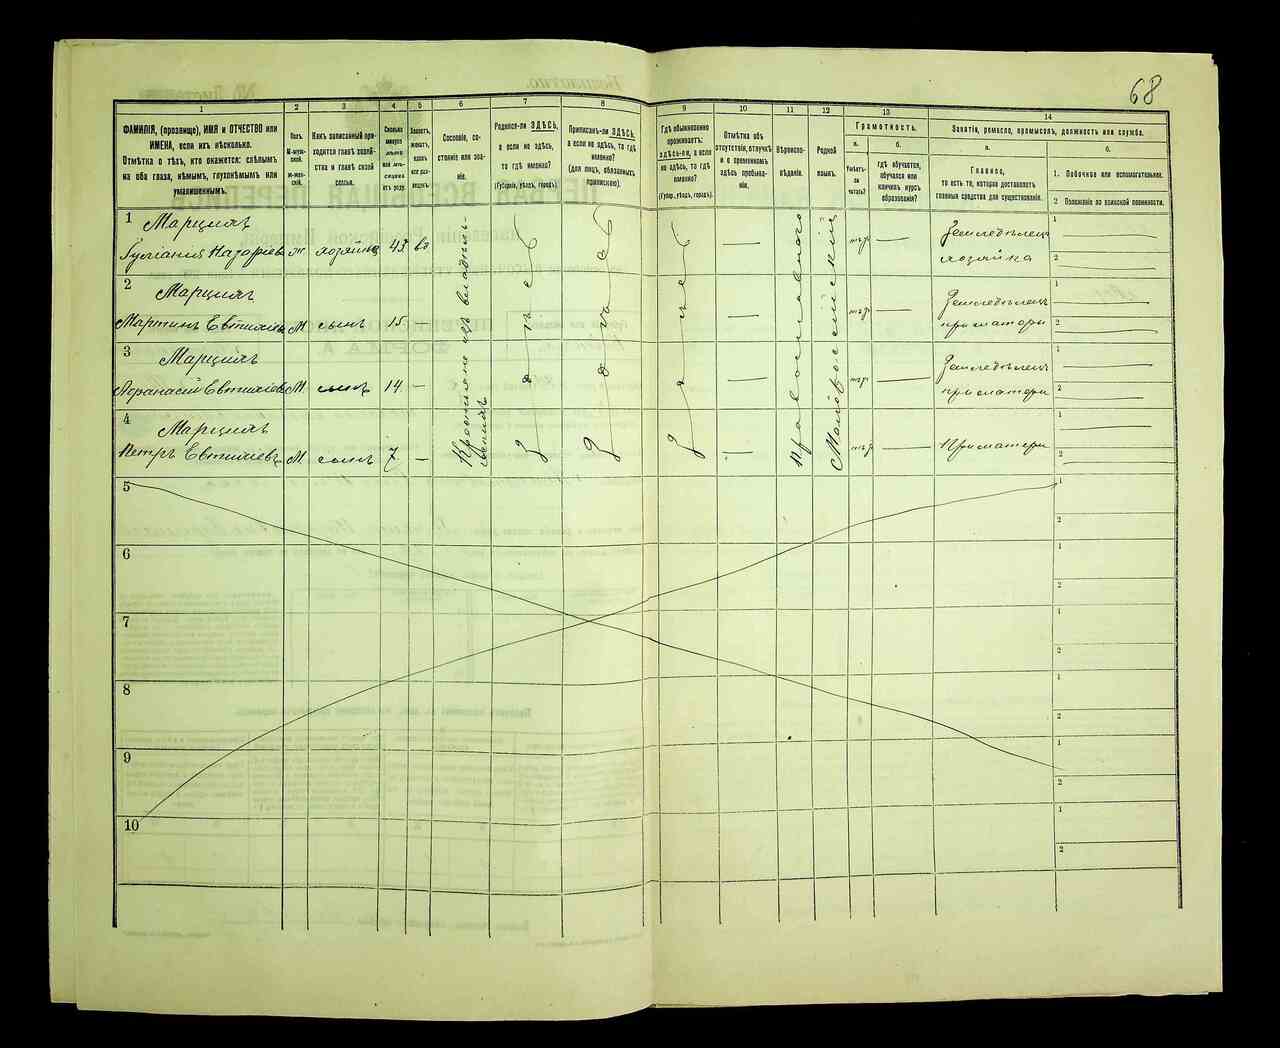 68
1 2 3 4 5 6 7 8 9 10 11 12 13 14
ФАМИЛІЯ, (прозвище), ИМЯ и ОТЧЕСТВО или
ИМЕНА, если ихъ нѣсколько.
Отмѣтка о тѣхъ, кто окажется: слѣпымъ
на оба глаза, нѣмымъ, глухонѣмымъ или
умалишеннымъ.
Полъ.
М-муж-
ской.
Ж-жен-
скій.
Какъ записанный при-
ходится главѣ хозяй-
ства и главѣ своей
семьи.
Сколько
минуло
лѣтъ
или мѣ-
сяцевъ
отъ роду.
Холостъ,
женатъ,
вдовъ
или раз-
веденъ.
Сословіе, со-
стояніе или зва-
ніе.
Родился-ли ЗДѢСЬ,
а если не здѣсь,
то гдѣ именно?
(Губернія, уѣздъ, городъ).
Приписанъ-ли ЗДѢСЬ,
а если не здѣсь, то гдѣ
именно?
(для лицъ, обязанныхъ
припискою).
Гдѣ обыкновенно
проживаетъ:
здѣсь-ли, а если
не здѣсь, то гдѣ
именно?
(Губер., уѣздъ, городъ).
Отмѣтка объ
отсутствіи, отлучкѣ
и о временномъ
здѣсь пребыва-
ніи.
Вѣроиспо-
вѣданіе.
Родной
языкъ.
Грамотность.
а.
Умѣетъ-
ли
читать?
б.
гдѣ обучается,
обучался или
кончилъ курсъ
образованія?
Занятіе, ремесло, промыселъ, должность или служба.
а.
Главное,
то есть то, которое доставляетъ
главныя средства для существованія.
б.
1. Побочное или вспомогательное.
2 Положеніе по воинской повинности.
1 Марциях
ж хозяйка 43 вд нѣтъ — Земледѣлецъ 1
хозяйка 2
2 Марциях
Мартинъ Евтихіевъ М. сынъ 15 — нѣтъ — Земледѣлецъ 1
при матери 2
3 Марциях
Афанасій Евтихіевъ М. сынъ 14 — нѣтъ — Земледѣлецъ 1
при матери 2
4 Марциях
Петръ Евтихіевъ М. сынъ 7 — нѣтъ — При матери 1
2
Крестьяне изъ
здѣсь
здѣсь
здѣсь
Православного
Малороссійскій
5 1
2
6 1
2
7 1
2
8 1
2
9 1
2
10 1
2